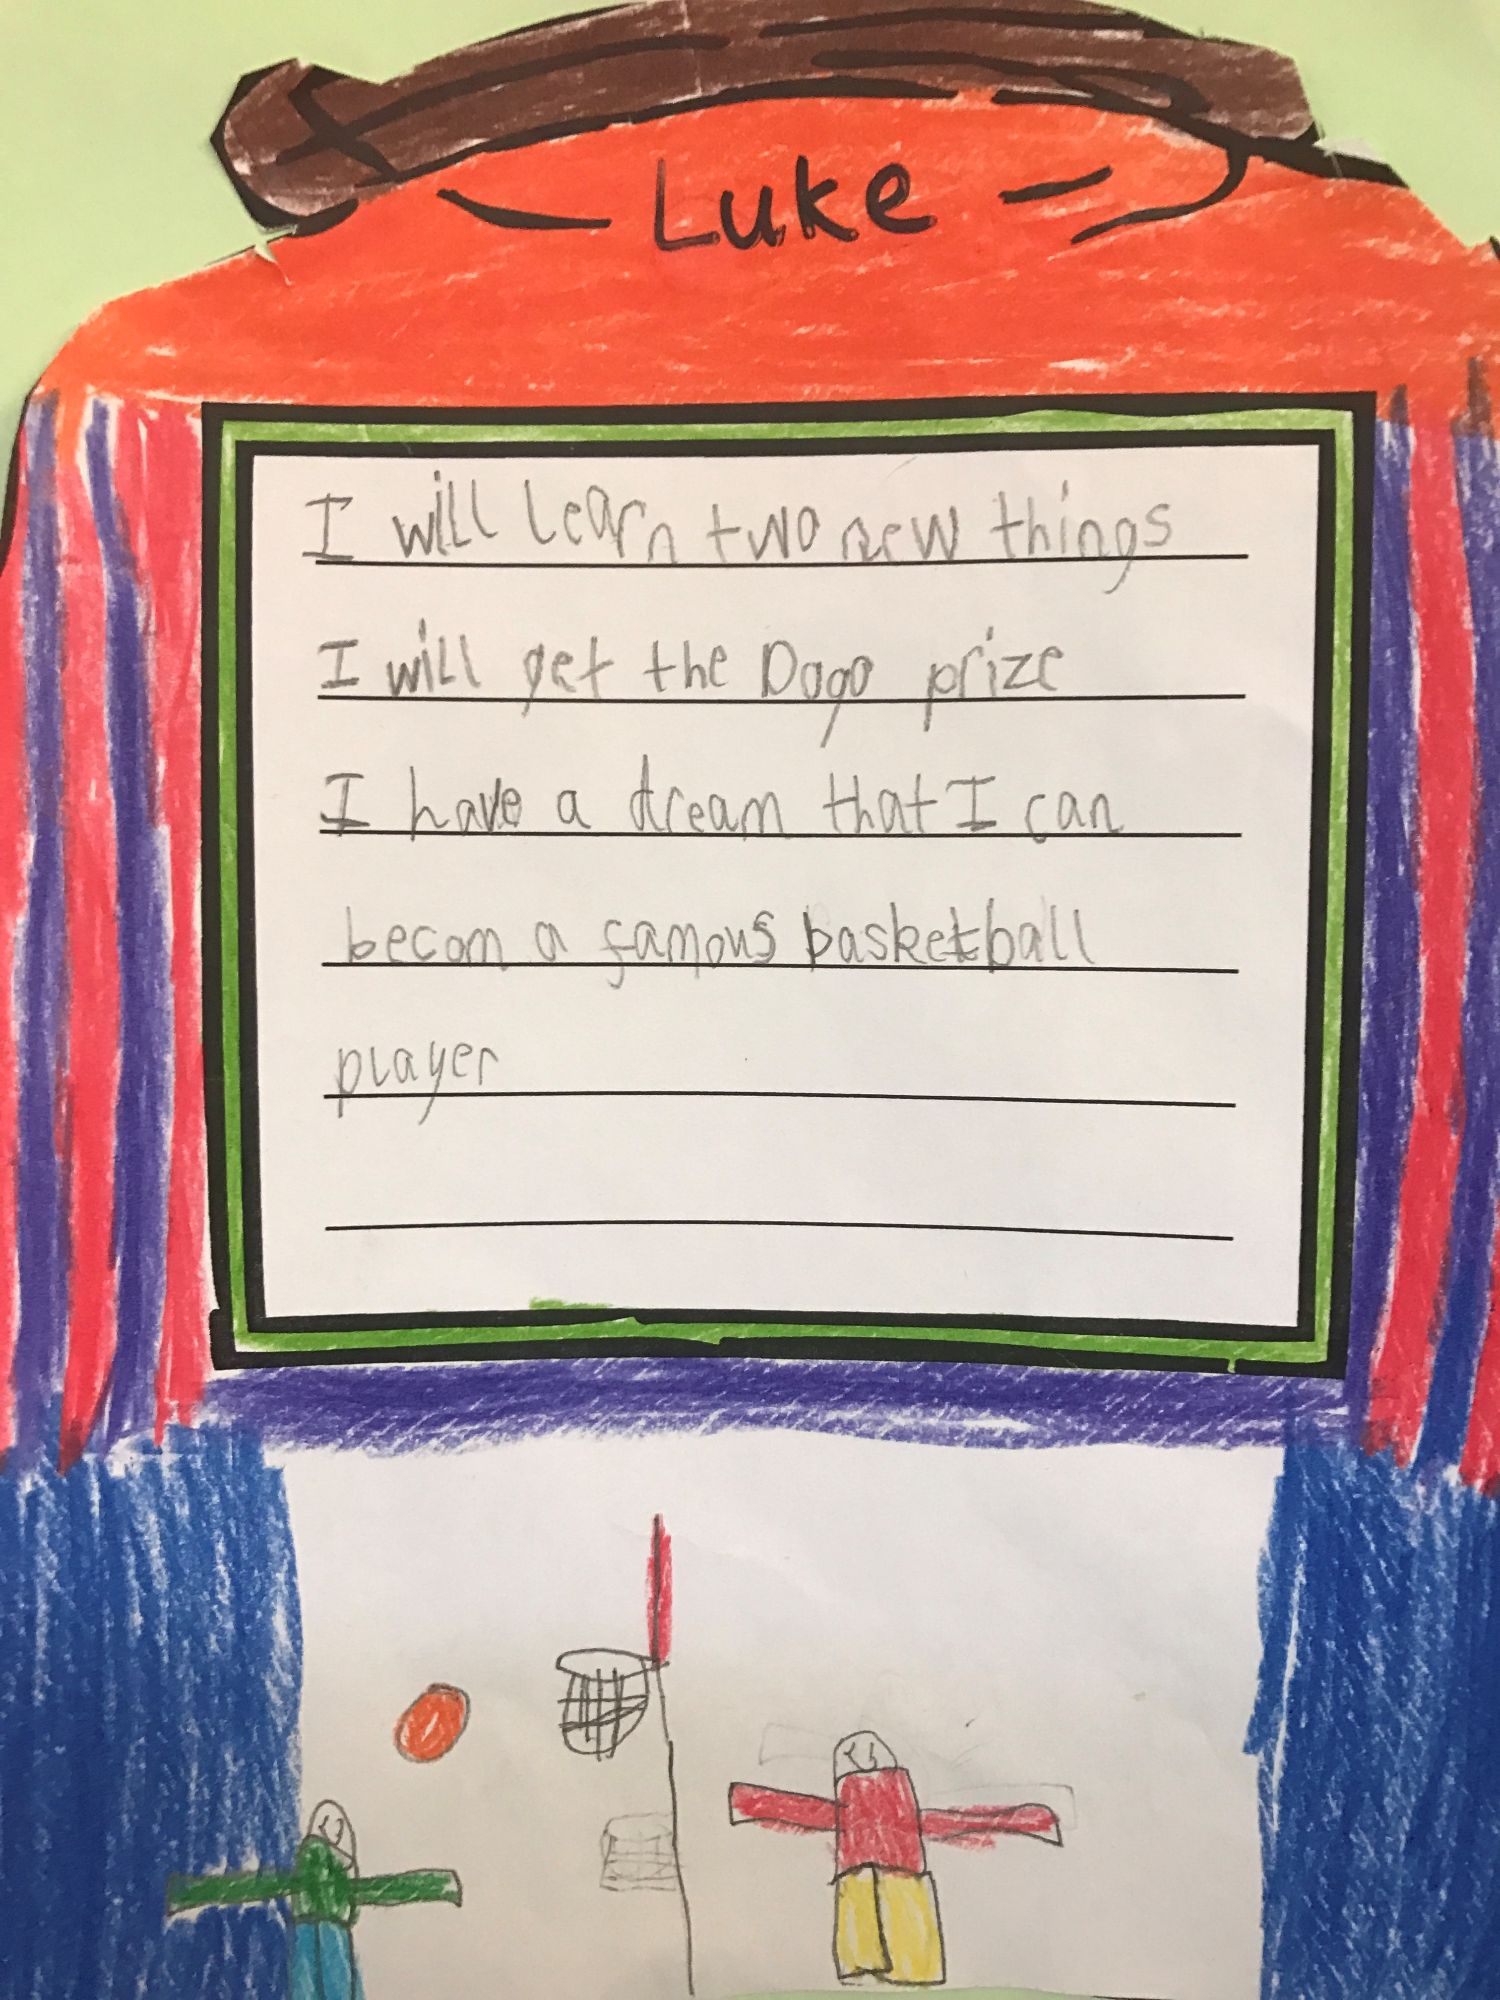 Luke
I will learn two new things
I will get the Dogo prize
I have a dream that I can
becom a famous basketball
player